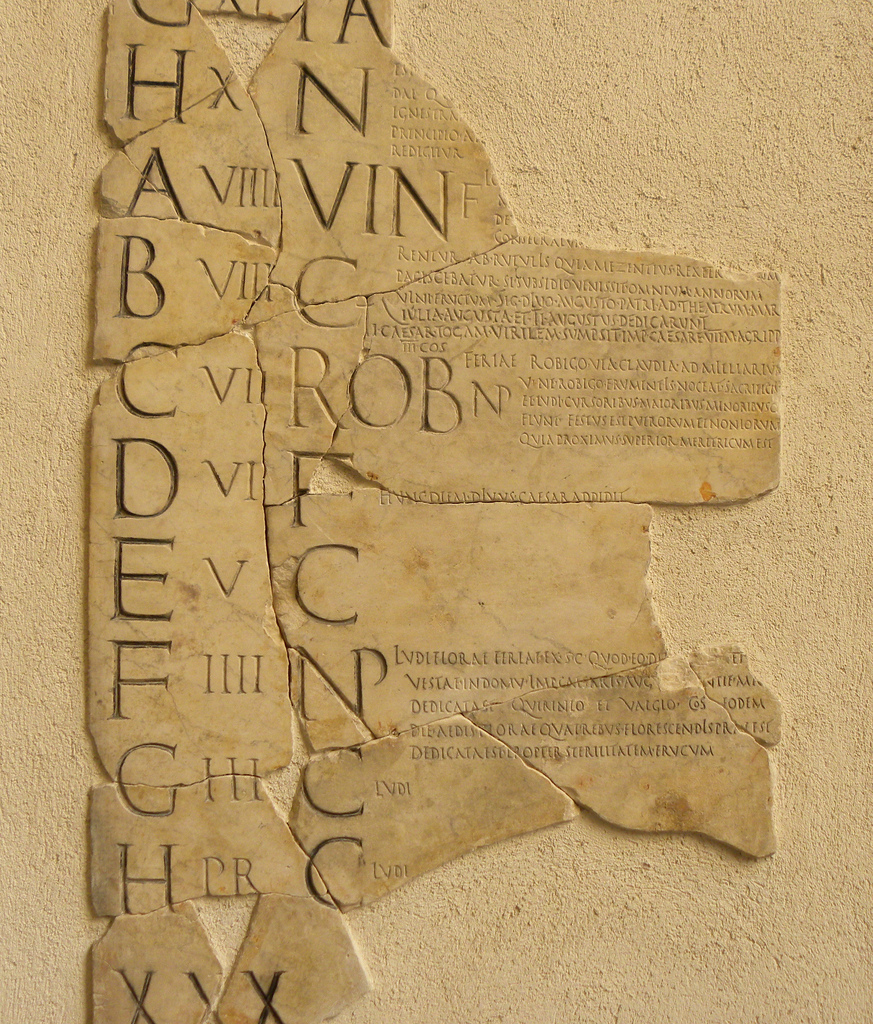 G XI PA
H X N
DAL
IGNE STRA
PRINCIPIO A
REDICITUR
A VIIII VIN F
DE
CONSECRATUR
B VIII C
RENTUR AB RUTULIS QUIA MEZINTIUS REX
PACISCEBATUR SI SUBSIDIO VENISSET OMNIUM ANNORUM
VINI FRUCTUM SIG DIVO AUGUSTO PATRI AD THEATRUM MAR
IULIA AUGUSTA ET TI AUGUSTUS DEDICARUNT
TI CAESAR TOGAM VIRILEM SUMPSIT IMP CAESARE VII M AGRIPP
III COS
C VII ROB NP
FERIAE ROBIGO VIA CLAUDIA AD MILLIARIU
V NE ROBIGO FRUMENTIS NOCEAT SACRIFICI
ET LUDI CURSORIBUS MAIORIBUS MINORIBUSQ
FIUNT FESTUS EST PUERORUM LENONIORUM
QUIA PROXIMUS SUPERIOR MERETRICUM EST
D VI F
HUNC DIEM DIVUS CAESAR ADDIDIT
E V C
F IIII NP
LUDI FLORAE FERIAE EX S C QUOD EO DI ET
VESTAE IN DOMU IMP CAESARIS AUG
DEDICATAST QUIRINIO ET VALGIO COS EODEM
DIE AEDIS FLORAE QUAE REBUS FLORESCENDIS PRAEEST
DEDICATA EST PROPTER STERILITATEM FRUCUM
G III C LUDI
H PR C LUDI
XXX